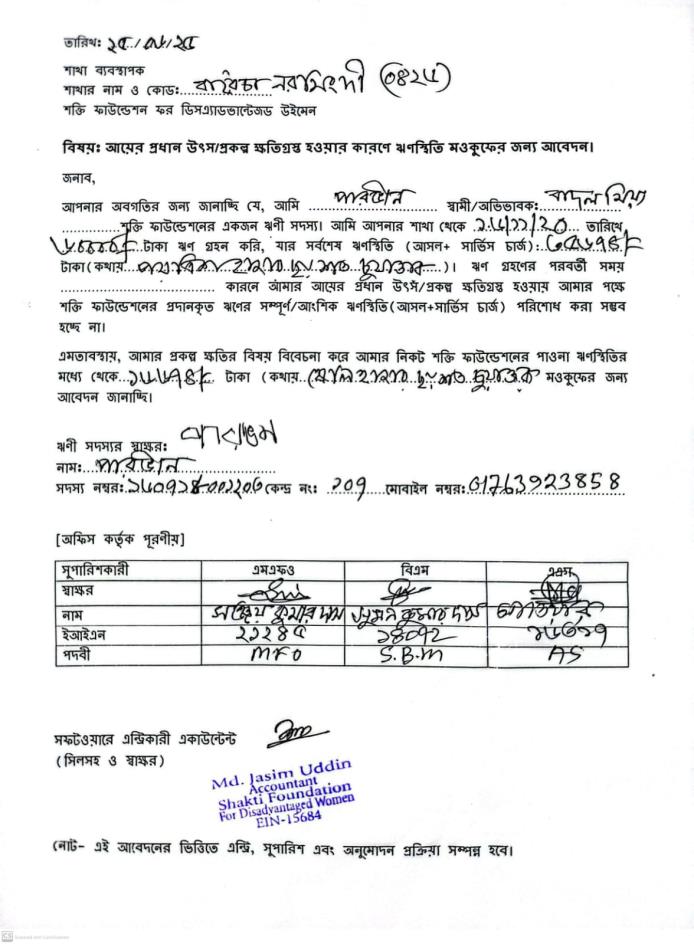 তারিখ: ২৫/০৮/২৫
শাখা ব্যবস্থাপক
শাখার নাম ও কোড: বারৈচা নরসিংদী (০৪২৮)
শক্তি ফাউন্ডেশন ফর ডিসএ্যাডভান্টেজড উইমেন
বিষয়: আয়ের প্রধান উৎস/প্রকল্প ক্ষতিগ্রস্ত হওয়ার কারণে ঋণস্থিতি মওকুফের জন্য আবেদন।
জনাব,
আপনার অবগতির জন্য জানাচ্ছি যে, আমি পারভীন স্বামী/অভিভাবক: বাদল মিয়া
শক্তি ফাউন্ডেশনের একজন ঋণী সদস্য। আমি আপনার শাখা থেকে তারিখে
টাকা ঋণ গ্রহন করি, যার সর্বশেষ ঋণস্থিতি (আসল+ সার্ভিস চার্জ):
টাকা(কথায় হাজার ছয় শত চুয়াত্তর)। ঋণ গ্রহণের পরবর্তী সময়
কারনে আমার আয়ের প্রধান উৎস/প্রকল্প ক্ষতিগ্রস্ত হওয়ায় আমার পক্ষে
শক্তি ফাউন্ডেশনের প্রদানকৃত ঋণের সম্পূর্ণ/আংশিক ঋণস্থিতি(আসল+সার্ভিস চার্জ) পরিশোধ করা সম্ভব
হচ্ছে না।
এমতাবস্থায়, আমার প্রকল্প ক্ষতির বিষয় বিবেচনা করে আমার নিকট শক্তি ফাউন্ডেশনের পাওনা ঋণস্থিতির
মধ্যে থেকে ১৬৬৭৪/= টাকা (কথায় ষোল হাজার ছয় শত চুয়াত্তর মওকুফের জন্য
আবেদন জানাচ্ছি।
ঋণী সদস্যর স্বাক্ষর: পারভীন
নাম: পারভীন
সদস্য নম্বর: কেন্দ্র নং: ২০৭ মোবাইল নম্বর: 01763923858
[অফিস কর্তৃক পূরণীয়]
সুপারিশকারী এমএফও বিএম এএস
স্বাক্ষর
নাম সঞ্জয় কুমার দাস সুমন কুমার দাস
ইআইএন ২২২৪৫ ১৪০৭২
পদবী MFO S.B.M AS
সফটওয়ারে এন্ট্রিকারী একাউন্টেন্ট
(সিলসহ ও স্বাক্ষর)
Md. Jasim Uddin
Accountant
Shakti Foundation
For Disadvantaged Women
EIN-15684
নোট- এই আবেদনের ভিত্তিতে এন্ট্রি, সুপারিশ এবং অনুমোদন প্রক্রিয়া সম্পন্ন হবে।
CS